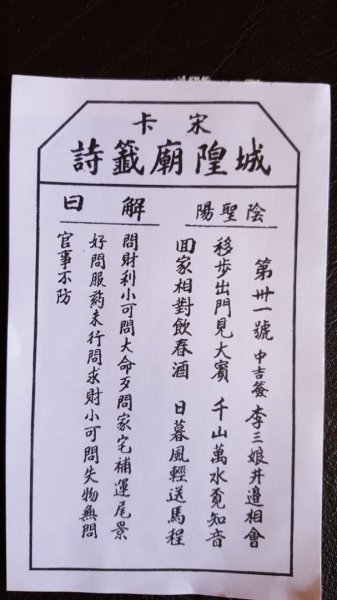 宋卡
城隍廟籤詩
陰聖陽
第卅一號 中吉签 李三娘井邊相會
移步出門見大賓 千山萬水覓知音
回家相對飲春酒 日暮風輕送馬程
解曰
問財利小可問大命歹問家宅補運尾景
好問服药未行問求財小可問失物無問
官事不防